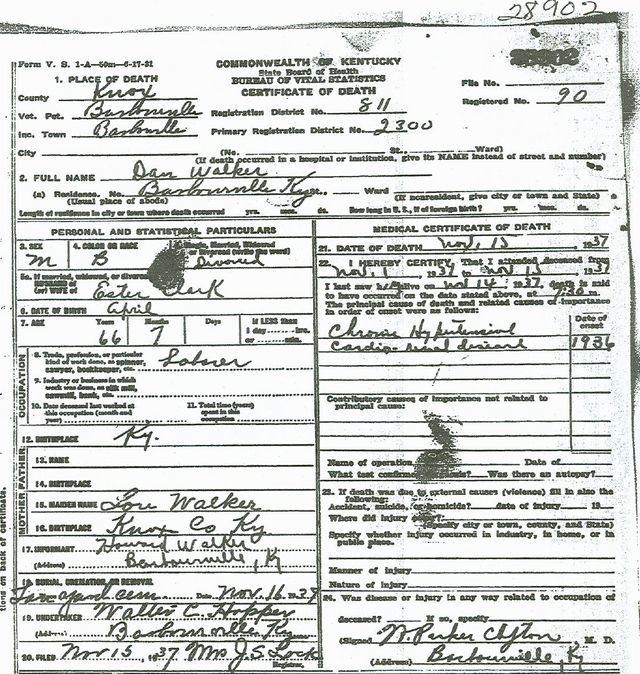 28902
Form V. S. 1-A—50m—6-17-31
COMMONWEALTH OF KENTUCKY
State Board of Health
BUREAU OF VITAL STATISTICS
CERTIFICATE OF DEATH
1. PLACE OF DEATH
County Knox
Vot. Pct. Barbourville
Inc. Town Barbourville
Registration District No. 811
Primary Registration District No. 2300
File No.
Registered No. 90
City (No. St., Ward)
(If death occurred in a hospital or institution, give its NAME instead of street and number)
2. FULL NAME Dan Walker
(a) Residence. No. Barbourville Ky Ward
(Usual place of abode) (If nonresident, give city or town and State)
Length of residence in city or town where death occurred yrs. mos. ds. How long in U. S., if of foreign birth? yrs. mos. ds.
PERSONAL AND STATISTICAL PARTICULARS
3. SEX M
4. COLOR OR RACE B
Single, Married, Widowed
or Divorced (write the word)
Divorced
5a. If married, widowed, or divorced
HUSBAND of
(or) WIFE of Ester Clark
6. DATE OF BIRTH April
7. AGE Years Months Days If LESS than
1 day hrs.
or min.
66 7
OCCUPATION
8. Trade, profession, or particular
kind of work done, as spinner,
sawyer, bookkeeper, etc. Laborer
9. Industry or business in which
work was done, as silk mill,
sawmill, bank, etc.
10. Date deceased last worked at
this occupation (month and
year)
11. Total time (years)
spent in this
occupation
12. BIRTHPLACE Ky.
FATHER
13. NAME
14. BIRTHPLACE
MOTHER
15. MAIDEN NAME Lou Walker
16. BIRTHPLACE Knox Co Ky
17. INFORMANT Howard Walker
(Address) Barbourville, Ky
18. BURIAL, CREMATION OR REMOVAL
cem Date Nov. 16 1937
19. UNDERTAKER Walter C. Hopper
(Address) Barbourville, Ky
20. FILED Nov 15, 1937 Mrs J. S. Lock
Registrar.
MEDICAL CERTIFICATE OF DEATH
21. DATE OF DEATH Nov, 15, 1937
22. I HEREBY CERTIFY, That I attended deceased from
Nov. 1, 1937 to Nov 15, 1937
I last saw alive on Nov 14, 1937, death is said
to have occurred on the date stated above, at 30 m.
The principal cause of death and related causes of importance
in order of onset were as follows:
Date of
onset
Chronic Hypertensive
Cardio-renal disease 1936
Contributory causes of importance not related to
principal cause:
Name of operation Date of
What test confirmed diagnosis? Was there an autopsy?
23. If death was due to external causes (violence) fill in also the
following:
Accident, suicide, or homicide? date of injury 19
Where did injury occur?
(Specify city or town, county, and State)
Specify whether injury occurred in industry, in home, or in
public place.
Manner of injury
Nature of injury
24. Was disease or injury in any way related to occupation of
deceased? If so, specify
(Signed W. Parker Clifton, M. D.
(Address) Barbourville, Ky
tions on back of certificate.